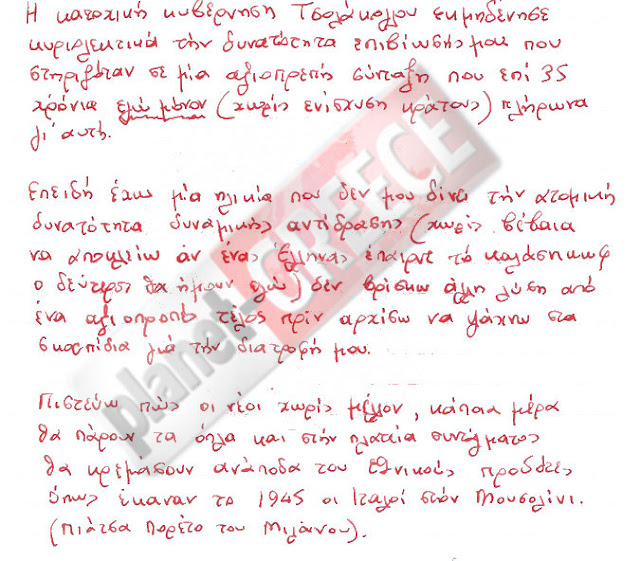 Η κατοχική κυβέρνηση Τσολάκογλου εκμηδένησε
κυριολεκτικά την δυνατότητα επιβίωσής μου που
στηριζόταν σε μία αξιοπρεπή σύνταξη που επί 35
χρόνια εγώ μόνον (χωρίς ενίσχυση κράτους) πλήρωνα
γι' αυτή.
Επειδή έχω μία ηλικία που δεν μου δίνει την ατομική
δυνατότητα δυναμικής αντίδρασης (χωρίς βέβαια
να αποκλείω αν ένας Έλληνας έπαιρνε το καλάσνικωφ
ο δεύτερος θα ήμουν εγώ) δεν βρίσκω άλλη λύση από
ένα αξιοπρεπές τέλος πριν αρχίσω να ψάχνω στα
σκουπίδια γιά την διατροφή μου.
Πιστεύω πως οι νέοι χωρίς μέλλον, κάποια μέρα
θα πάρουν τα όπλα και στην πλατεία συντάγματος
θα κρεμάσουν ανάποδα τους εθνικούς προδότες
όπως έκαναν το 1945 οι Ιταλοί στον Μουσολίνι.
(Πιάτσα Πορέτο του Μιλάνου).
planet-GREECE